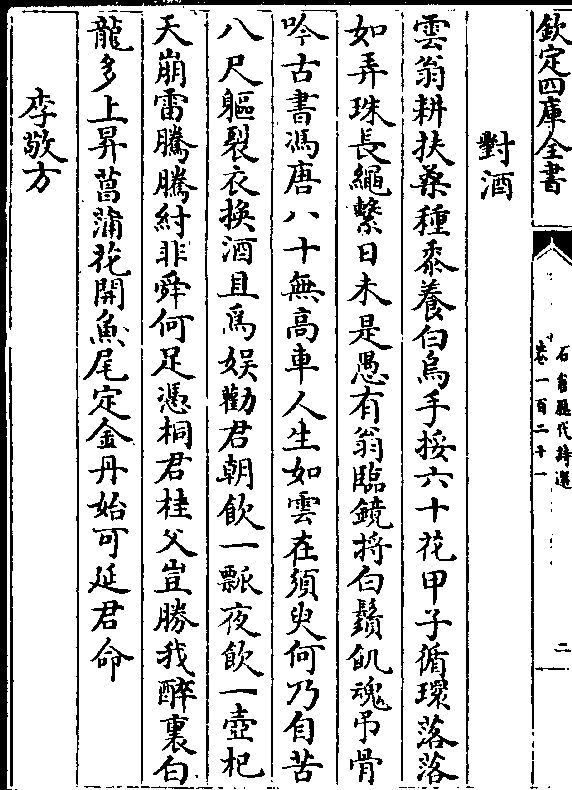 欽定四庫全書
石倉歷代詩選
卷一百二十一
二
對酒
雲翁耕扶桒種黍養白烏手挼六十花甲子循環落落
如弄珠長繩繫日未是愚有翁臨鏡捋白鬚飢魂弔骨
吟古書馮唐八十無高車人生如雲在須臾何乃自苦
八尺軀裂衣換酒且爲娱勸君朝飲一瓢夜飲一壺杞
天崩雷騰騰紂非舜何足憑桐君桂父豈勝我醉裏白
龍多上昇菖蒲花開魚尾定金丹始可延君命
李敬方